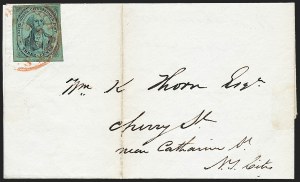 Wm K Thorn Esqr
Cherry St
near Catharine St
N.Y. City